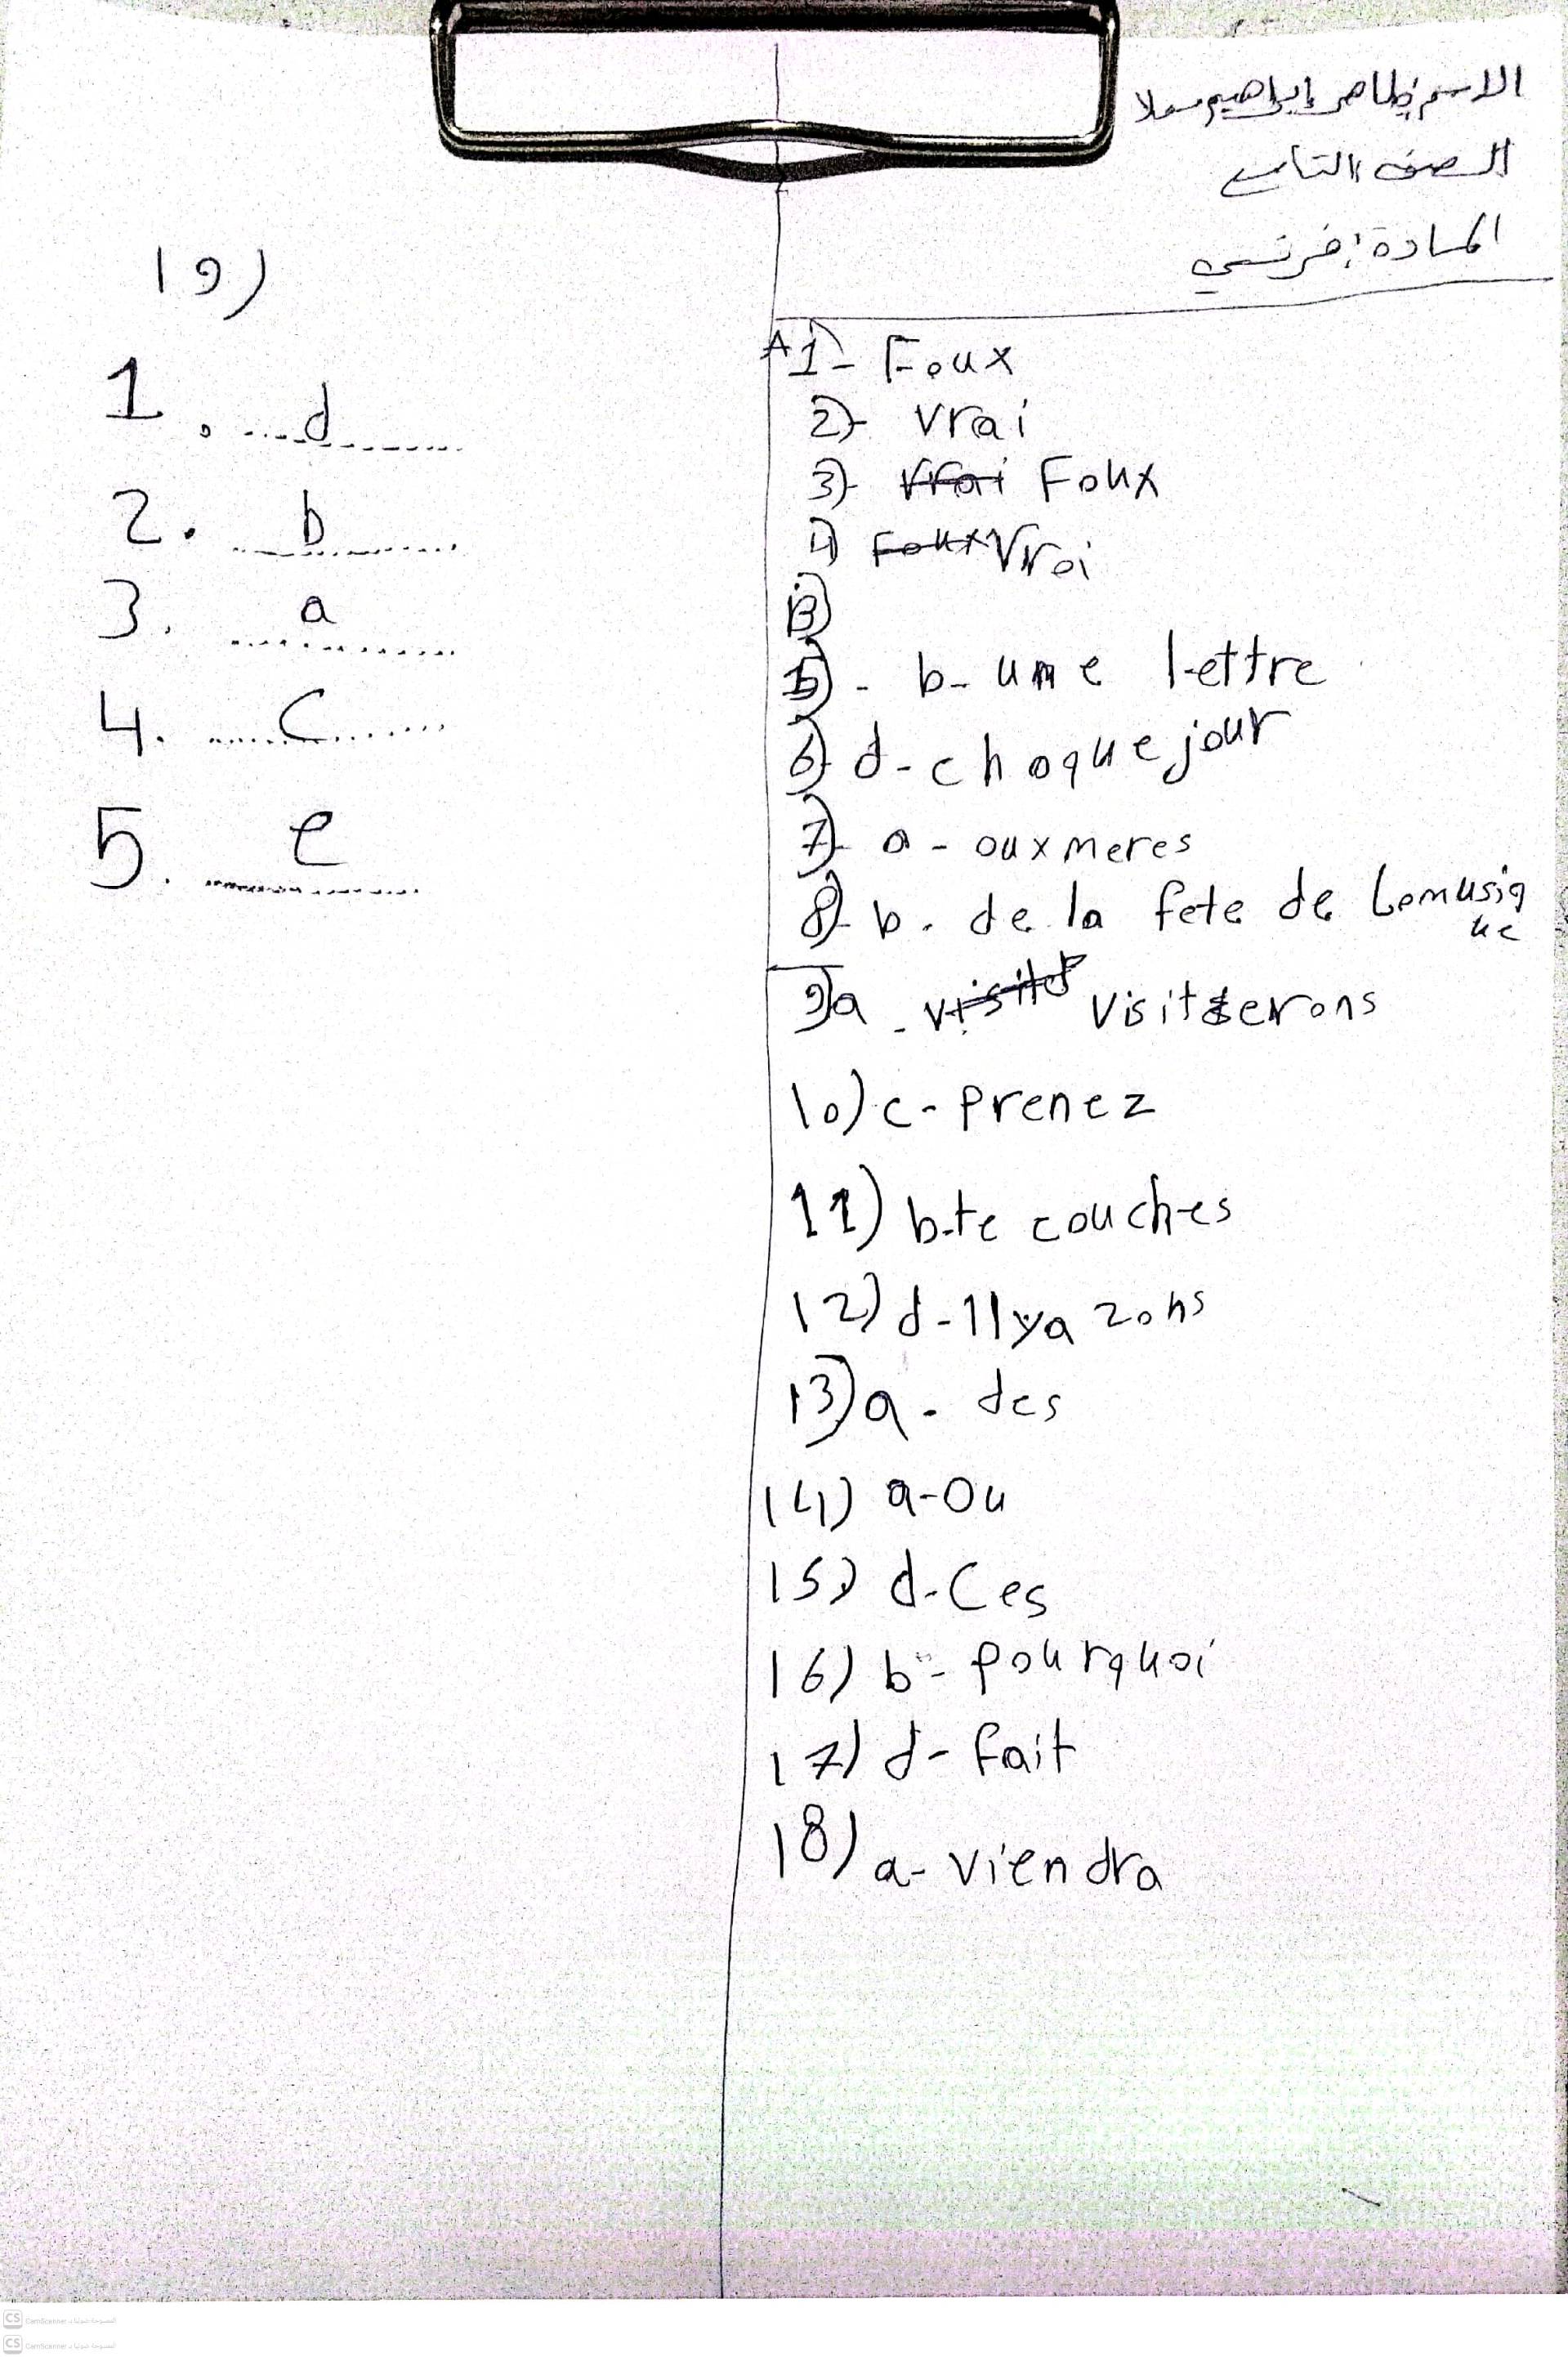 الاسم: طاهر إبراهيم سملا
الصف التاسع
المادة: فرنسي
A 1)- Foux
2)- vrai
3)- vrai Foux
4) Foux Vrai
B)
5)- b- une lettre
6) d- choque jour
7)- a- oux meres
8)- b. de la fete de lamusiq
ue
9) a - visiter visiterons
10) c- prenez
11) b-te couches
12) d- Ilya 20 ns
13) a- des
14) a-Ou
15) d-Ces
16) b- pourquoi
17) d- fait
18) a- viendra
19)
1. ....d........
2. ....b........
3. ....a........
4. ....c........
5. ....e........
CS CamScanner الممسوحة ضوئيا بـ
CS CamScanner الممسوحة ضوئيا بـ